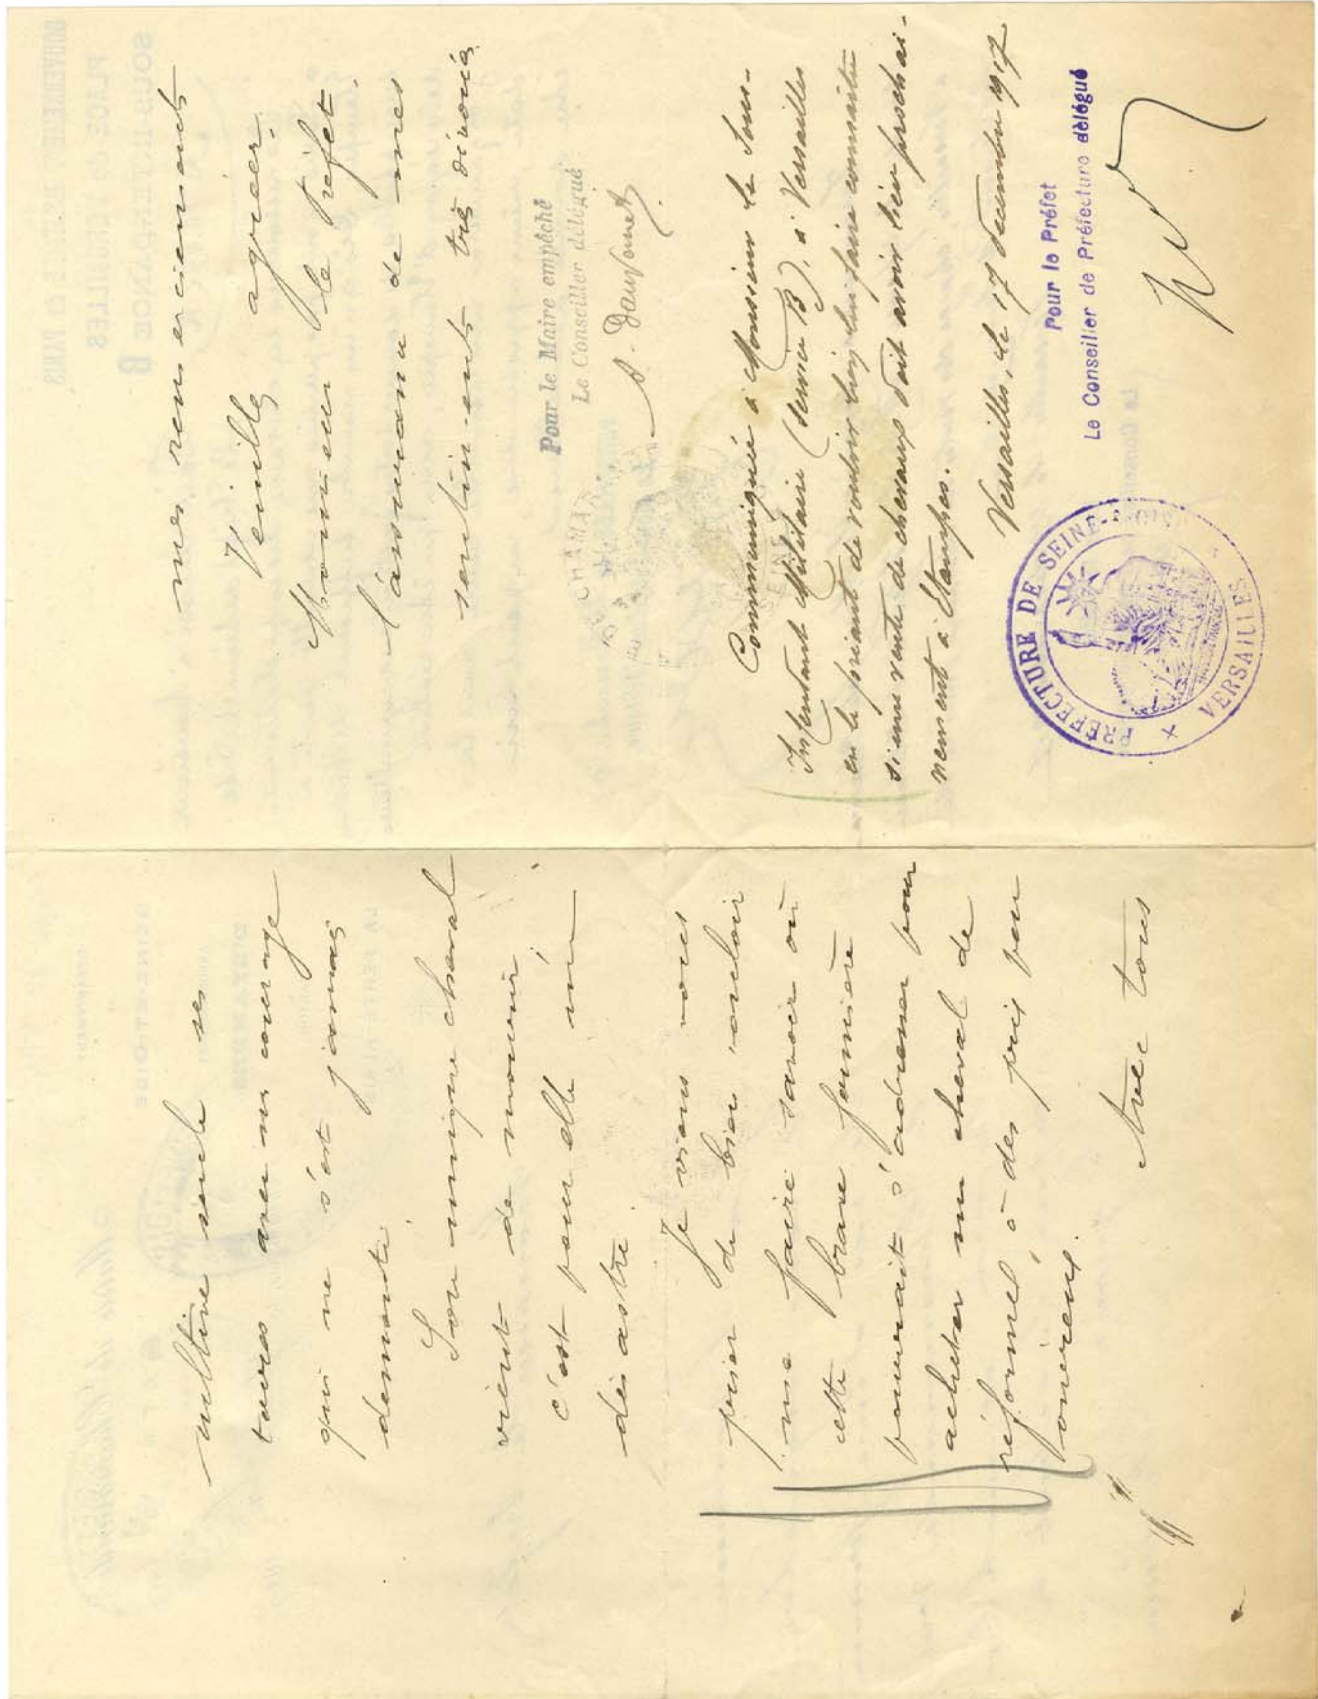 cultive seule ses
terres avec un courage
qui ne s'est jamais
démenti.
Son unique cheval
vient de mourir,
c'est pour elle un
désastre.
Je viens vous
prier de bien vouloir
me faire savoir où
cette brave fermière
pourrait s'adresser pour
acheter un cheval de
réformé à des prix peu
onéreux.
Avec tous
mes remerciements
Veuillez agréer,
Monsieur le Préfet,
l'assurance de mes
sentiments très dévoués
Pour le Maire empêché
Le Conseiller délégué
Communiquée à Monsieur le Sous-
Intendant Militaire (service B), à Versailles
en le priant de vouloir bien lui faire connaître
si une vente de chevaux doit avoir lieu prochai-
nement à Etampes.
Versailles, le 17 décembre 1917
Pour le Préfet
Le Conseiller de Préfecture délégué
PRÉFECTURE DE SEINE-
VERSAILLES